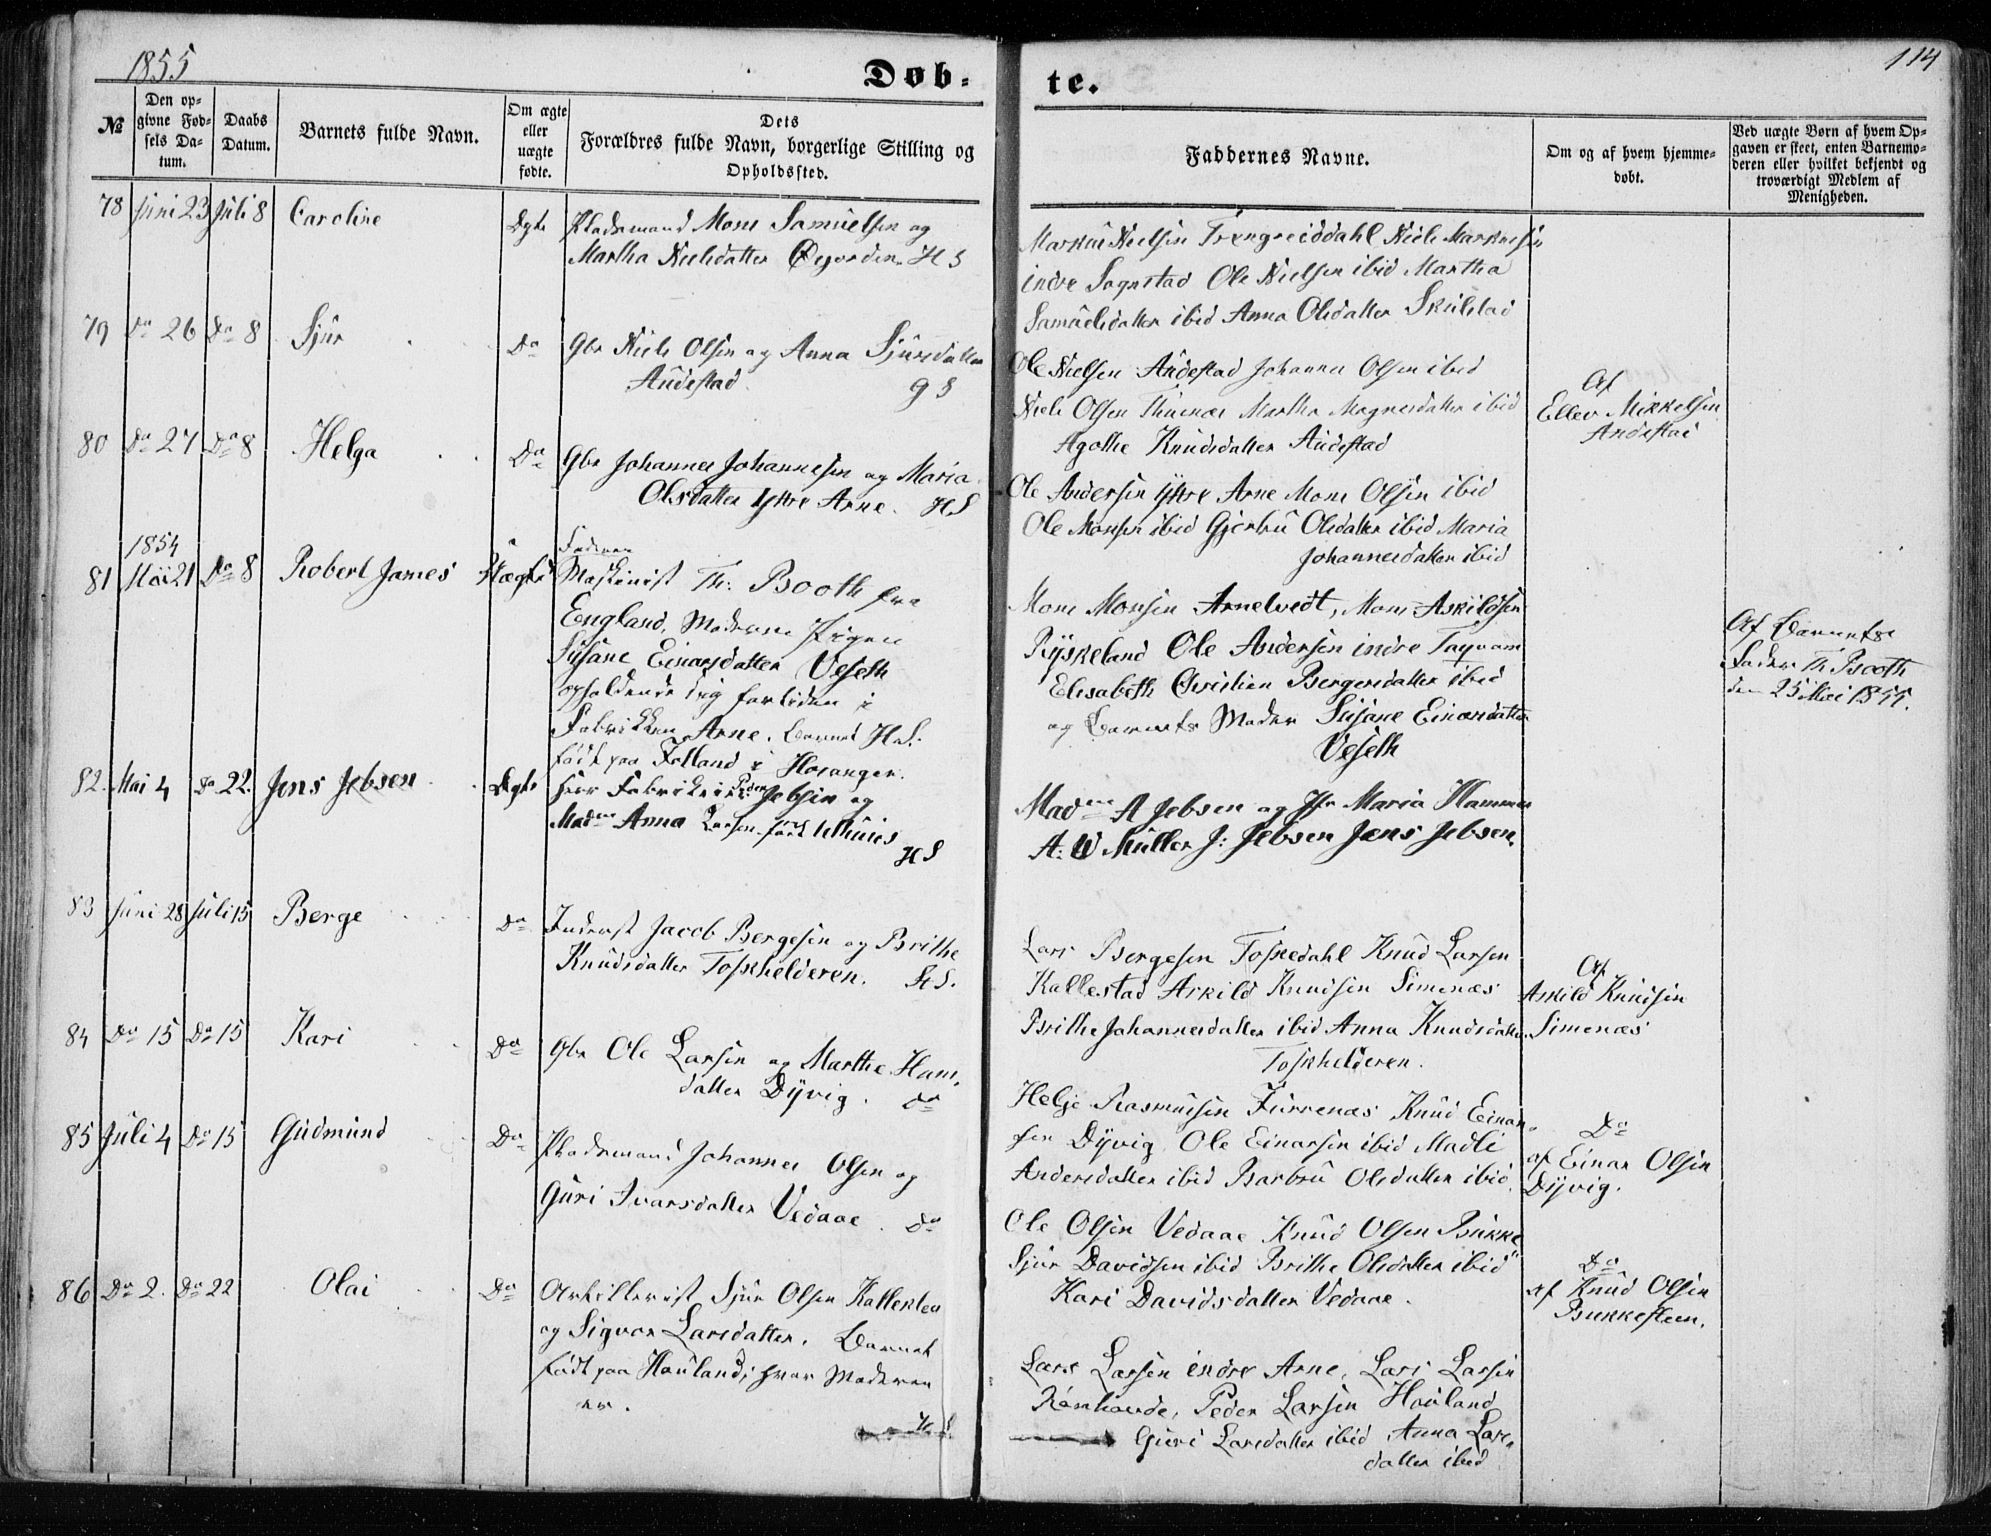 1855
114
Døb-
te.
№
Den op-
givne Fød-
sels Da-
tum.
Daabs
Datum.
Barnets fulde Navn.
Om ægte
eller
uægte
fødte.
Dets
Forældres fulde Navn, borgerlige Stilling og
Opholdssted.
Faddernes Navne.
Om og af hvem hjemme-
døbt.
Ved uægte Børn af hvem Op-
gaven er skeet, enten Barnemo-
deren eller hvilket bekjendt og
troværdigt Medlem af
Menigheden.
78 Juni 23 Juli 8 Caroline Ægte Pladsmand Mons Samuelsen og
Martha Nielsdatter HS
Markus Nielsen Niels Markusen
indre Sognstad Ole Nielsen ibid Martha
Samuelsdatter ibid Anna Olsdatter Skulstad
79 Do 26 Do 8 Sjur Do Gbr Niels Olsen og Anna Sjursdatter
Audestad GS
Ole Nielsen Audestad Johannes Olsen ibid
Niels Olsen Martha Magnesdatter ibid
Agathe Knudsdatter Audestad
Af
Ellev Mikkelsen
Andestad
80 Do 27 Do 8 Helga Do Gbr Johannes Johannesen og Maria
Olsdatter Ythre Arne. HS
Ole Andersen Ythre Arne Mons Olsen ibid
Ole Monsen ibid Gjertru Olsdatter ibid Maria
Johannesdatter ibid
1854
81 Mai 21 Do 8 Robert James Uægte
Faderen
Maskinist Th: Booth fra
England, Moderen Pigen
Susane Einarsdatter Veseth
opholdende sig for tiden i
Fabrikken Arne. Barnet HS.
født paa Folland i Hosanger.
Mons Monsen Arnetvedt, Mons Askildsen
Ryskeland Ole Andersen indre Tagvam
Elisabeth Christien Bergersdatter ibid
og Barnets Moder Susane Einarsdatter
Veseth
Af Barnets
Fader Th. Booth
den 25 Mai 1855.
82. Mai 4 Do 22. Jens Jebsen Ægte Herr Peder Jebsen og
Madme Anna født HS
Madme A Jebsen og Jfr Maria Hammer
A: W Müller J: Jebsen Jens Jebsen.
83 Juni 28 Juli 15 Berge Do Inderst Jacob Bergesen og Brithe
Knudsdatter Toskhelderen. HS.
Lars Bergesen Toskedahl Knud Larsen
Kallestad Askild Knudsen Simenæs
Brithe Johannesdatter ibid Anna Knudsdatter
Toskhelderen.
Af
Askild Knudsen
Simenæs
84 Do 15 Do 15 Kari Do Gbr Ole Larsen og Marthe Hans-
datter Dyvig. Do
Helje Rasmussen Furrenæs Knud Einar-
sen Dyvig, Ole Einarsen ibid Madli
Andersdatter ibid Barbru Olsdatter ibid.
Do
af Einar Olsen
Dyvig.
85 Juli 4 Do 15 Gudmund Do Pladsmand Johannes Olsen og
Guri Ivarsdatter Vedaae. Do
Ole Olsen Vedaae Knud Olsen Bukke
Sjur Davidsen ibid Brithe Olsdatter ibid
Kari Davidsdatter Vedaae.
Do
af Knud Olsen
Bukkesteen.
86 Do 2. Do 22 Olai Do Artillerist Sjur Olsen Kalleklev
og Sigvor Larsdatter. Barnet
født paa Houland, hvor Moderen
er. HS
Lars Larsen indre Arne, Lars Larsen
Peder Larsen Houland
Guri Larsdatter ibid Anna Lars-
datter ibid